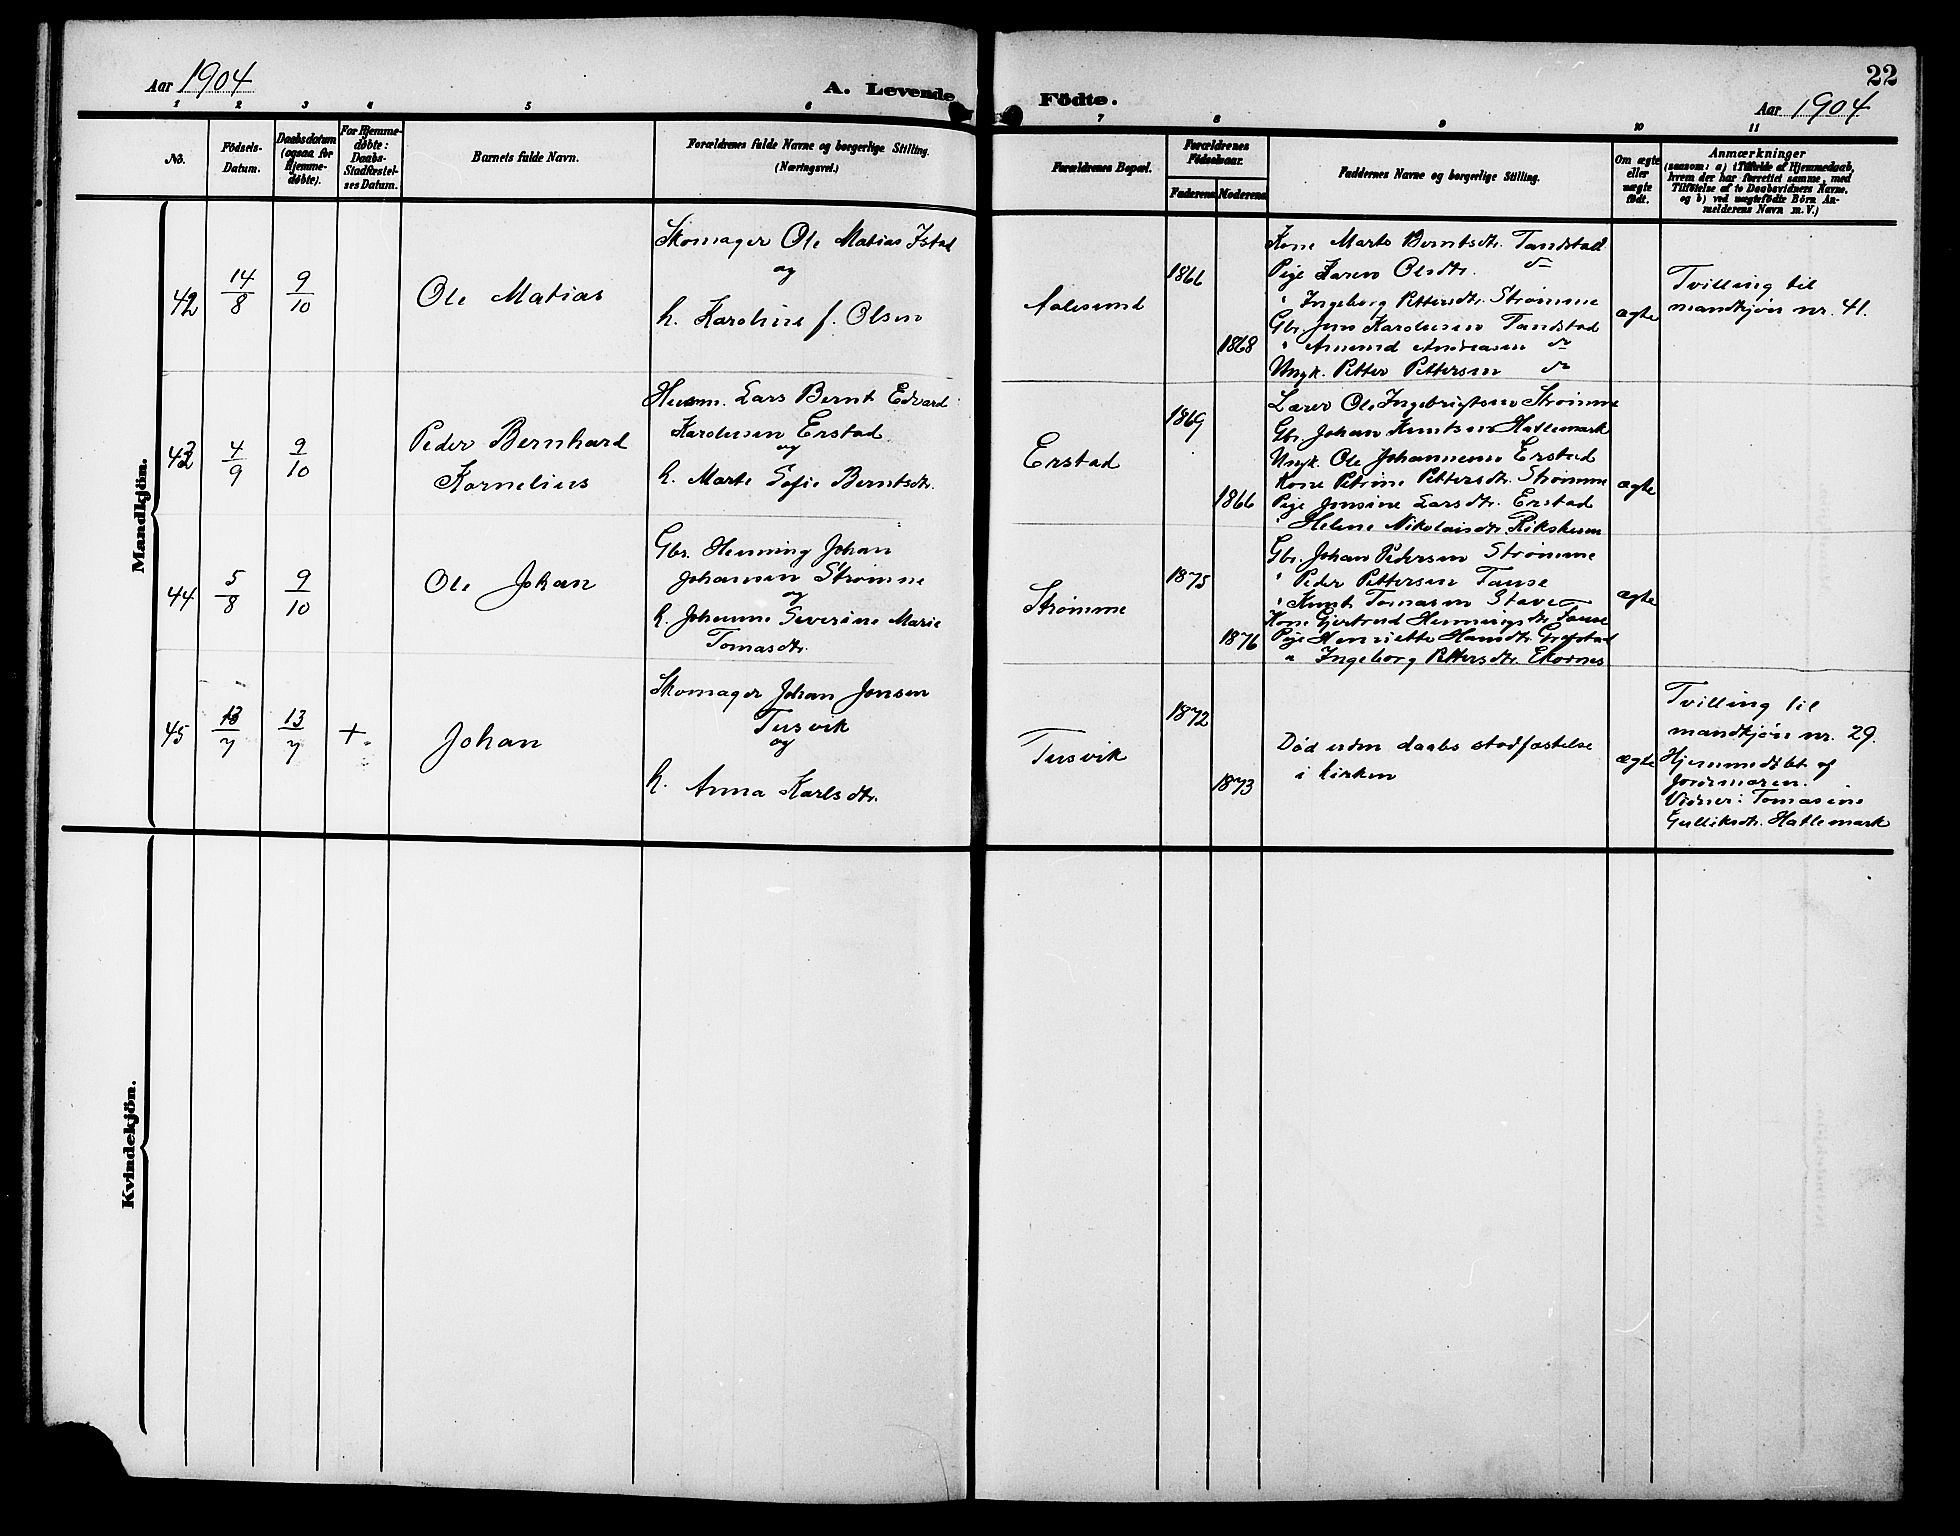 Aar 1904
A. Levende
Födte.
22
Aar 1904
1 2 3 4 5 6 7 8 9 10 11
No.
Födsels-
Datum.
Daabsdatum
(ogsaa for
Hjemme-
døbte).
For Hjemme-
døbte:
Daabs-
Stadfæstel-
ses Datum.
Barnets fulde Navn.
Forældrenes fulde Navne og borgerlige Stilling.
(Næringsvei.)
Forældrenes Bopæl.
Forældrenes
Födselsaar.
Faderens
Moderens
Faddernes Navne og borgerlige Stilling.
Om ægte
eller
uægte
født.
Anmærkninger
(saasom: a) i Tilfælde af Hjemmedaab,
hvem der har forrettet samme, med
Tilföielse af to Daabsvidners Navne,
og b) ved uægtefödte Börn An-
melderens Navn m. V.)
Mandkjön.
42
14/8
9/10
Ole Matias
Skomager Ole Matias Istad
og
h. Karoline f. Olsen
Aalesund
1866
1868
Kone Marte Berntsdtr. Tandstad
Pige Karen Olsdtr. do
" Ingeborg Pettersdtr. Strømme
Gbr. Jens Karolusen Tandstad
" Amund Andreasen do
Ungk. Petter Pettersen do
ægte
Tvilling til
mandkjøn nr. 41.
43
4/9
9/10
Peder Bernhard
Kornelius
Husm. Lars Bernt Edvard
Karolusen Erstad
og
h. Marte Sofie Berntsdtr.
Erstad
1869
1866
Lærer Ole Ingebrigtsen Strømme
Gbr. Johan Knutsen Hatlemark
Ungk. Ole Johannesen Erstad
Kone Petrine Pettersdtr. Strømme
Pige Jensine Larsdtr. Erstad
" Helene Nikolaisdtr. Riksheim
ægte
44
5/8
9/10
Ole Johan
Gbr. Henning Johan
Johansen Strømme
og
h. Johanne Severine Marie
Tomasdtr.
Strømme
1875
1876
Gbr. Johan Pedersen Strømme
" Peder Pettersen Tause
" Knut Tomasen Stave
Kone Gjertrud Henningsdtr. Tause
Pige Henriette Hansdtr.
" Ingeborg Pettersdtr. Ekornes
ægte
45
13/7
13/7
+.
Johan
Skomager Johan Jonsen
Tusvik
og
h. Anna Karlsdtr.
Tusvik
1872
1873
Død uden daabs stadfæstelse
i kirken
ægte
Tvilling til
mandkjøn nr. 29.
Hjemmedøbt af
Jordmoren.
Vidner: Tomasine
Gulliksdtr. Hatlemark
Kvindekjön.